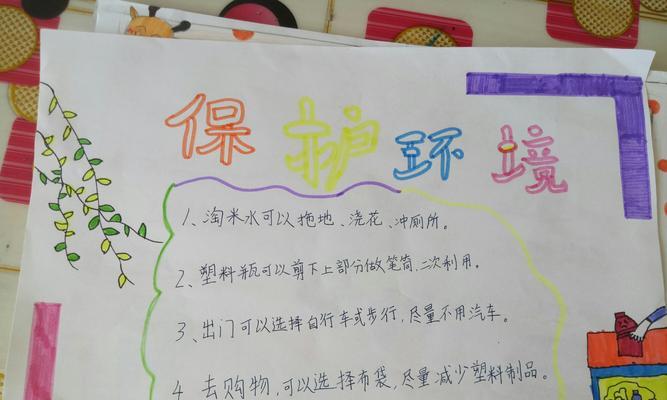 保护环境
1、淘米水可以拖地、浇花、冲厕所。
2、塑料瓶可以剪下上部分做笔筒，二次利用。
3、出门可以选择自行车或步行，尽量不用汽车。
4、去购物，可以选择布袋，尽量减少塑料制品。